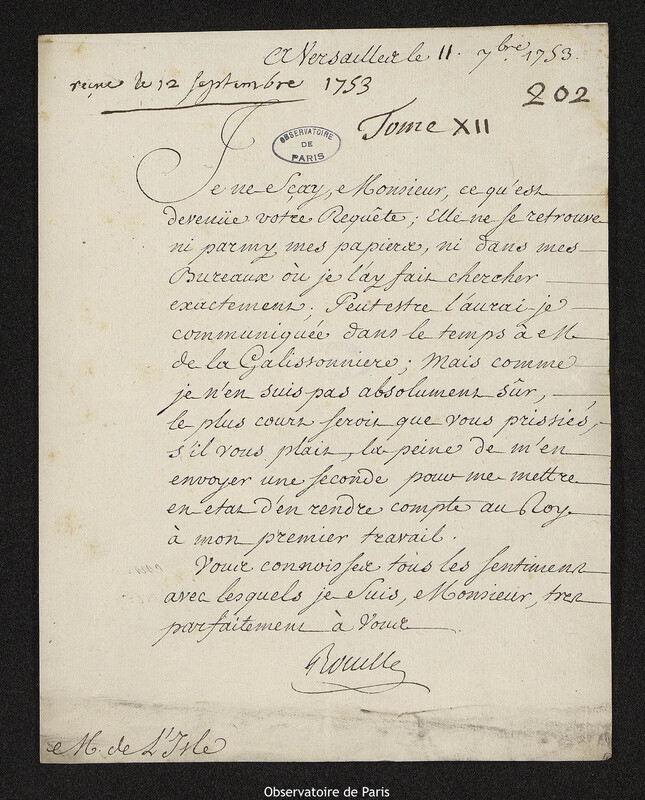 A Versailles le 11. 7bre 1753.
reçue le 12 septembre 1753
202
Tome XII
OBSERVATOIRE
DE
PARIS
Je ne sçay, Monsieur, ce qu'est
devenüe votre Requête; Elle ne se retrouve
ni parmy mes papiers, ni dans mes
Bureaux où je l'ay fait chercher
exactement; Peut estre l'aurai-je
communiquée dans le temps à M
de la Galissonniere; Mais comme
je n'en suis pas absolument sûr,
le plus court seroit que vous prissiés,
s'il vous plait, la peine de m'en
envoyer une seconde pour me mettre
en etat d'en rendre compte au Roy
à mon premier travail.
Vous connoissez tous les sentimens
avec lesquels je suis, Monsieur, tres
parfaitement à Vous
Rouillé
M. de L'Isle
Observatoire de Paris